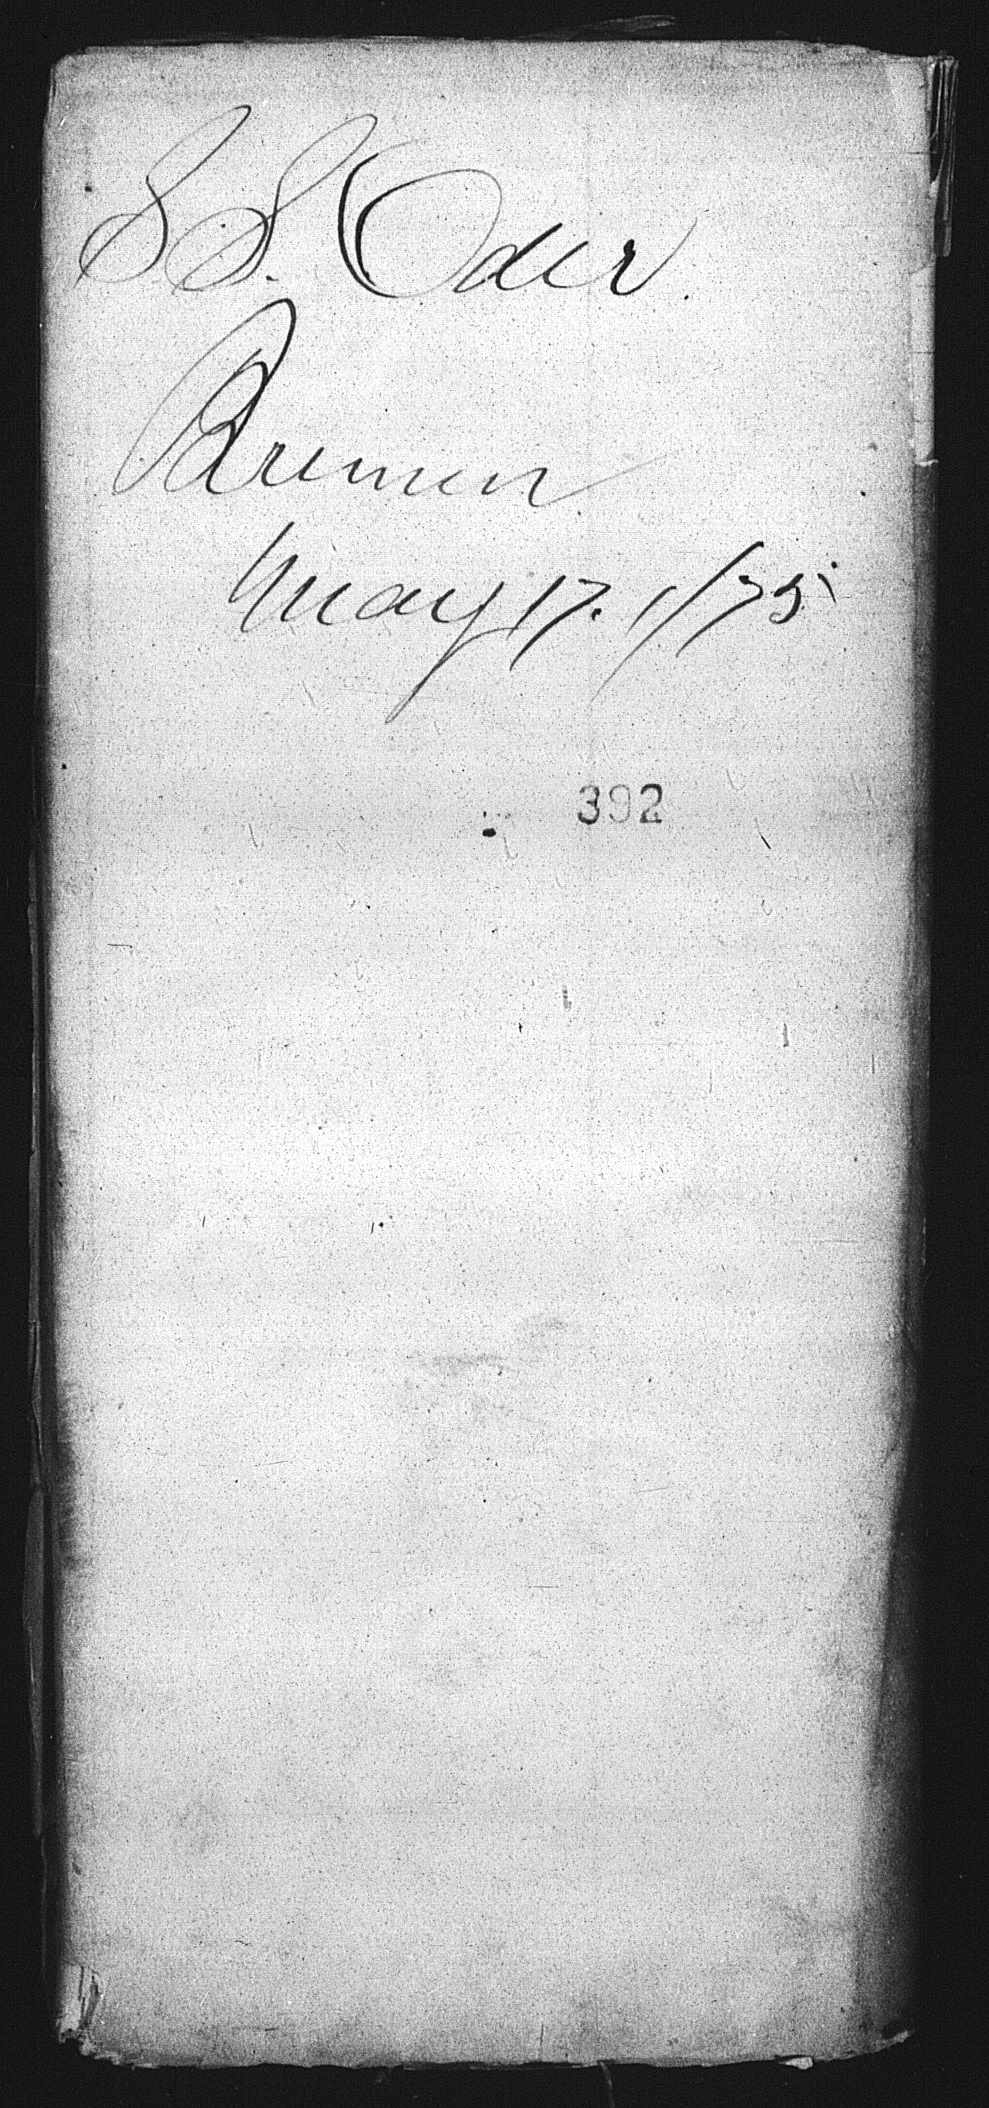 S S. Oder.
Bremen
May 17. 1/75
392